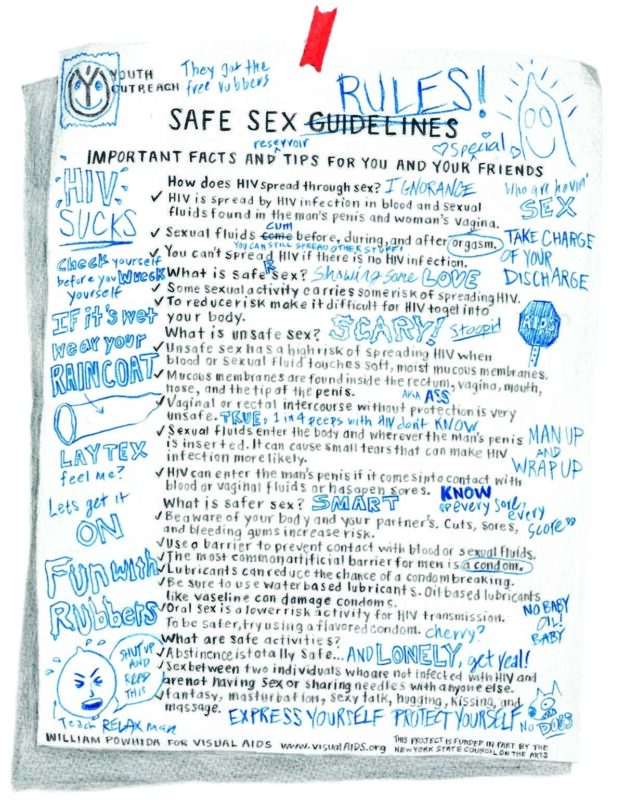 YOUTH
OUTREACH
They got the
free rubbers
RULES!
SAFE SEX GUIDELINES
reservoir
Special
IMPORTANT FACTS AND TIPS FOR YOU AND YOUR FRIENDS
HIV
SUCKS
Check yourself
before you WRECK
yourself
IF it's wet
wear your
RAINCOAT
LAYTEX
feel me?
Lets get it
ON
Fun with
Rubbers
SHUT UP
AND
READ
THIS
Teach
RELAX man
How does HIV spread through sex? IGNORANCE
✓ HIV is spread by HIV infection in blood and sexual
fluids found in the man's penis and woman's vagina.
CUM
✓ Sexual fluids come before, during, and after orgasm.
YOU CAN STILL SPREAD OTHER STUFF!
✓ You can't spread HIV if there is no HIV infection.
R
What is safe sex? Showing some LOVE
✓ Some sexual activity carries some risk of spreading HIV.
✓ To reduce risk make it difficult for HIV to get into
your body.
What is unsafe sex? SCARY! Stoopid
✓ Unsafe sex has a high risk of spreading HIV when
blood or sexual fluid touches soft, moist mucous membranes.
✓ Mucous membranes are found inside the rectum, vagina, mouth,
nose, and the tip of the penis. AKA ASS
✓ Vaginal or rectal intercourse without protection is very
unsafe. TRUE, 1 in 4 peeps with HIV don't KNOW
✓ Sexual fluids enter the body and wherever the man's penis
is inserted. It can cause small tears that can make HIV
infection more likely.
✓ HIV can enter the man's penis if it comes into contact with
blood or vaginal fluids or has open sores. KNOW
What is safer sex? SMART
"every sore,
every
score"
✓ Be aware of your body and your partner's. Cuts, sores,
and bleeding gums increase risk.
✓ Use a barrier to prevent contact with blood or sexual fluids.
✓ The most common artificial barrier for men is a condom.
✓ Lubricants can reduce the chance of a condom breaking.
✓ Be sure to use water based lubricants. Oil based lubricants
like vaseline can damage condoms.
✓ Oral sex is a lower risk activity for HIV transmission.
To be safer, try using a flavored condom. cherry?
What are safe activities?
✓ Abstinence is totally safe... AND LONELY, get real!
✓ Sex between two individuals who are not infected with HIV and
are not having sex or sharing needles with anyone else.
✓ Fantasy, masturbation, sexy talk, hugging, kissing, and
massage. EXPRESS YOURSELF PROTECT YOURSELF
Who are havin'
SEX
TAKE CHARGE
OF YOUR
DISCHARGE
AIDS
MAN UP
AND
WRAP UP
NO BABY
OIL!
BABY
No DOGS
WILLIAM POWHIDA FOR VISUAL AIDS www.visualAIDS.org
THIS PROJECT IS FUNDED IN PART BY THE
NEW YORK STATE COUNCIL ON THE ARTS